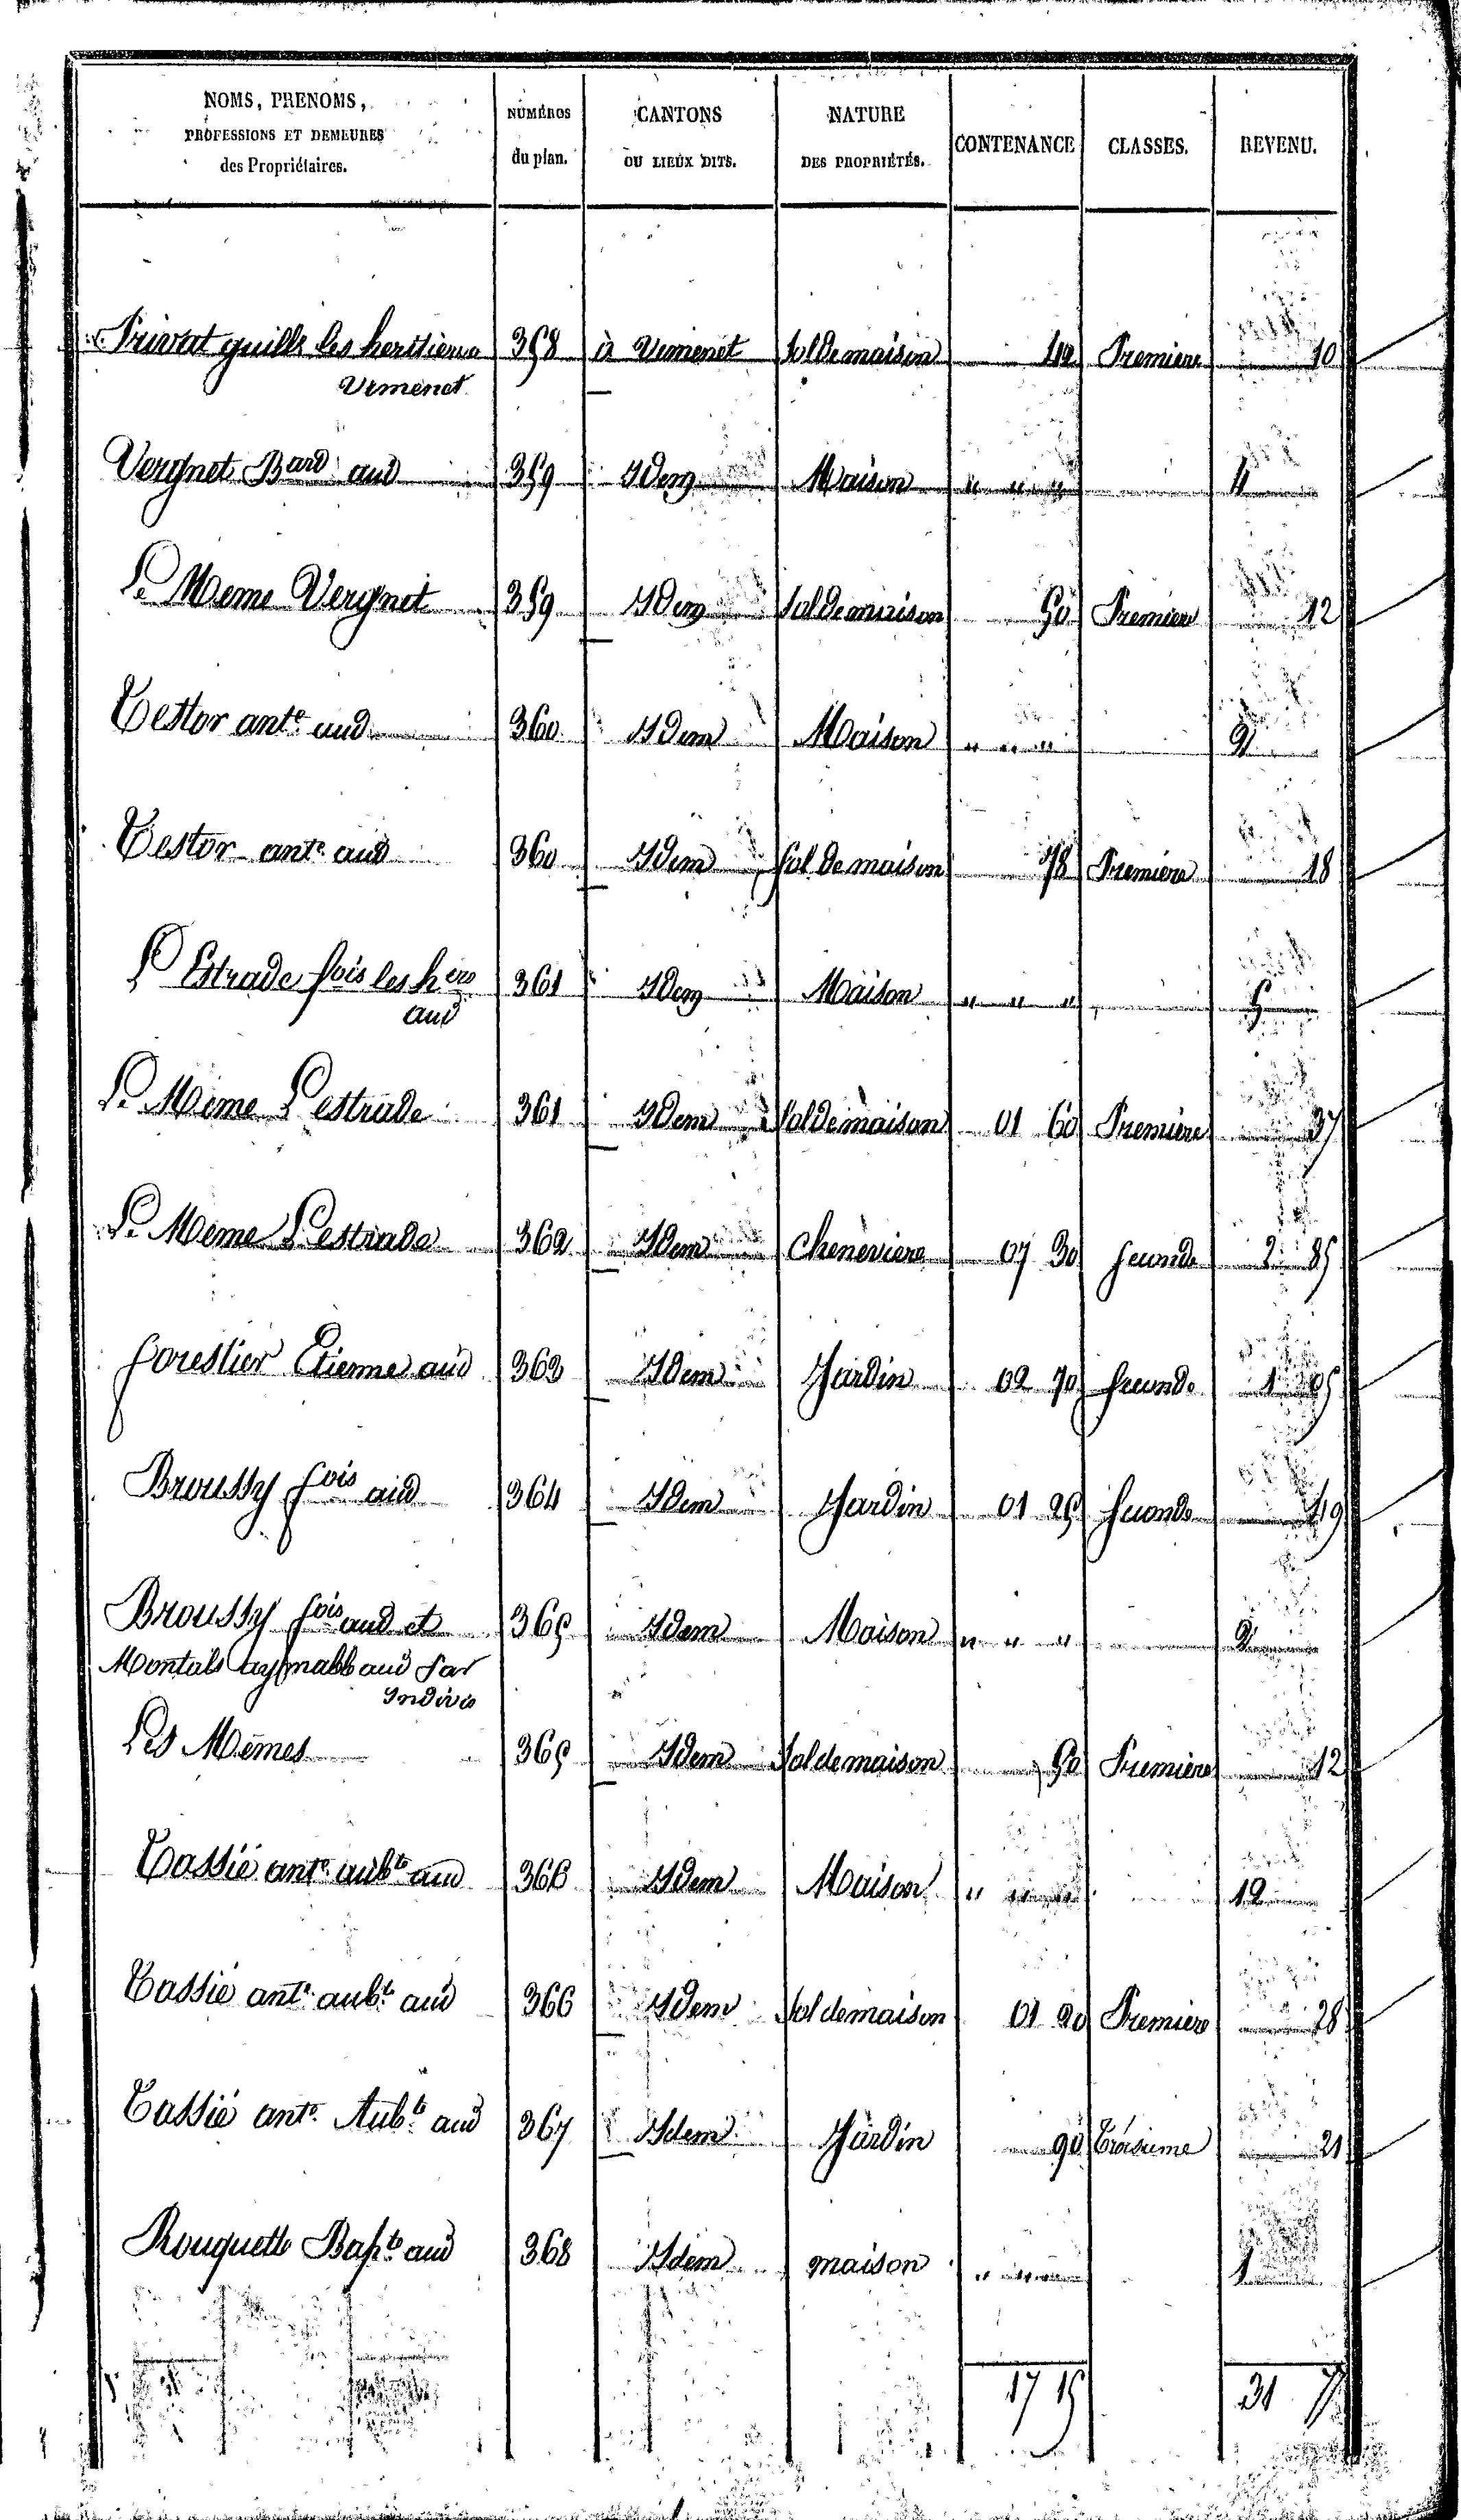 NOMS, PRENOMS, PROFESSIONS ET DEMEURES des Propriétaires. | NUMÉROS du plan. | CANTONS OU LIEUX DITS. | NATURE DES PROPRIÉTÉS. | CONTENANCE | CLASSES. | REVENU.
Privat guille les heritiers | 358 | à Vimenet | Sol de maison | 42 | Premiere | 10
Vimenet
Vergnet Bard aud | 359 | Idem | Maison | " " " | | 4
Le Meme Vergnet | 359 | Idem | Sol de maison | 50 | Premiere | 12
Testor ante aud | 360 | Idem | Maison | " " " | | 9
Testor ante aud | 360 | Idem | Sol de maison | 78 | Premiere | 18
L'Estrade fois les hers | 361 | Idem | Maison | " " " | | 5
aud
Le Même Lestrade | 361 | Idem | Sol de maison | 01 60 | Premiere | 37
Le Même Lestrade | 362 | Idem | Cheneviere | 07 30 | Seconde | 2 85
Forestier Etienne aud | 363 | Idem | Jardin | 02 70 | Seconde | 1 05
Broussy fois aud | 364 | Idem | Jardin | 01 25 | Seconde | 49
Broussy fois aud et | 365 | Idem | Maison | " " " | | 9
Montals aud Par
Indivis
Les Mêmes | 365 | Idem | Sol de maison | 50 | Premiere | 12
Cassié ante aubte aud | 366 | Idem | Maison | " | | 12
Cassié ante aubte aud | 366 | Idem | Sol de maison | 01 20 | Premiere | 28
Cassié ante Aubte aud | 367 | Idem | Jardin | 90 | Troisieme | 21
Rouquette Bapte aud | 368 | Idem | maison | " | | 4
17 15 | 31